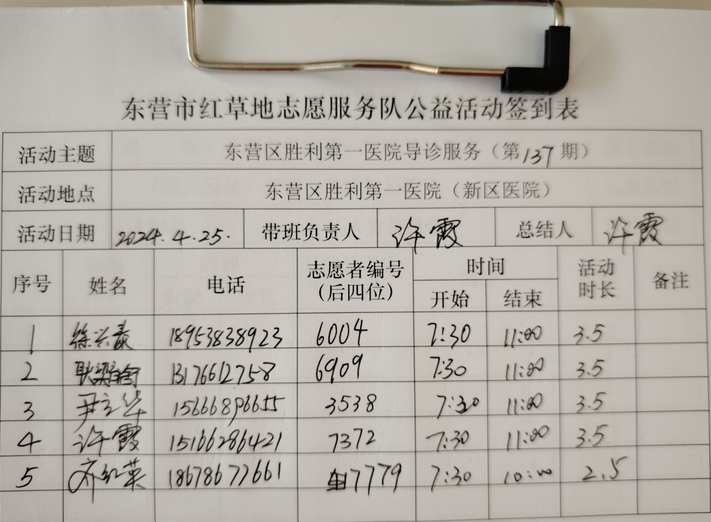 东营市红草地志愿服务队公益活动签到表
活动主题 东营区胜利第一医院导诊服务（第137期）
活动地点 东营区胜利第一医院（新区医院）
活动日期 2024.4.25. 带班负责人 许霞 总结人 许霞
序号 姓名 电话 志愿者编号（后四位） 时间 开始 结束 活动时长 备注
1 徐兴泰 18953838923 6004 7:30 11:00 3.5
2 耿 13176612758 6909 7:30 11:00 3.5
3 尹立华 15666896655 3538 7:30 11:00 3.5
4 许霞 15166286421 7372 7:30 11:00 3.5
5 齐红英 18678677661 7779 7:30 10:00 2.5